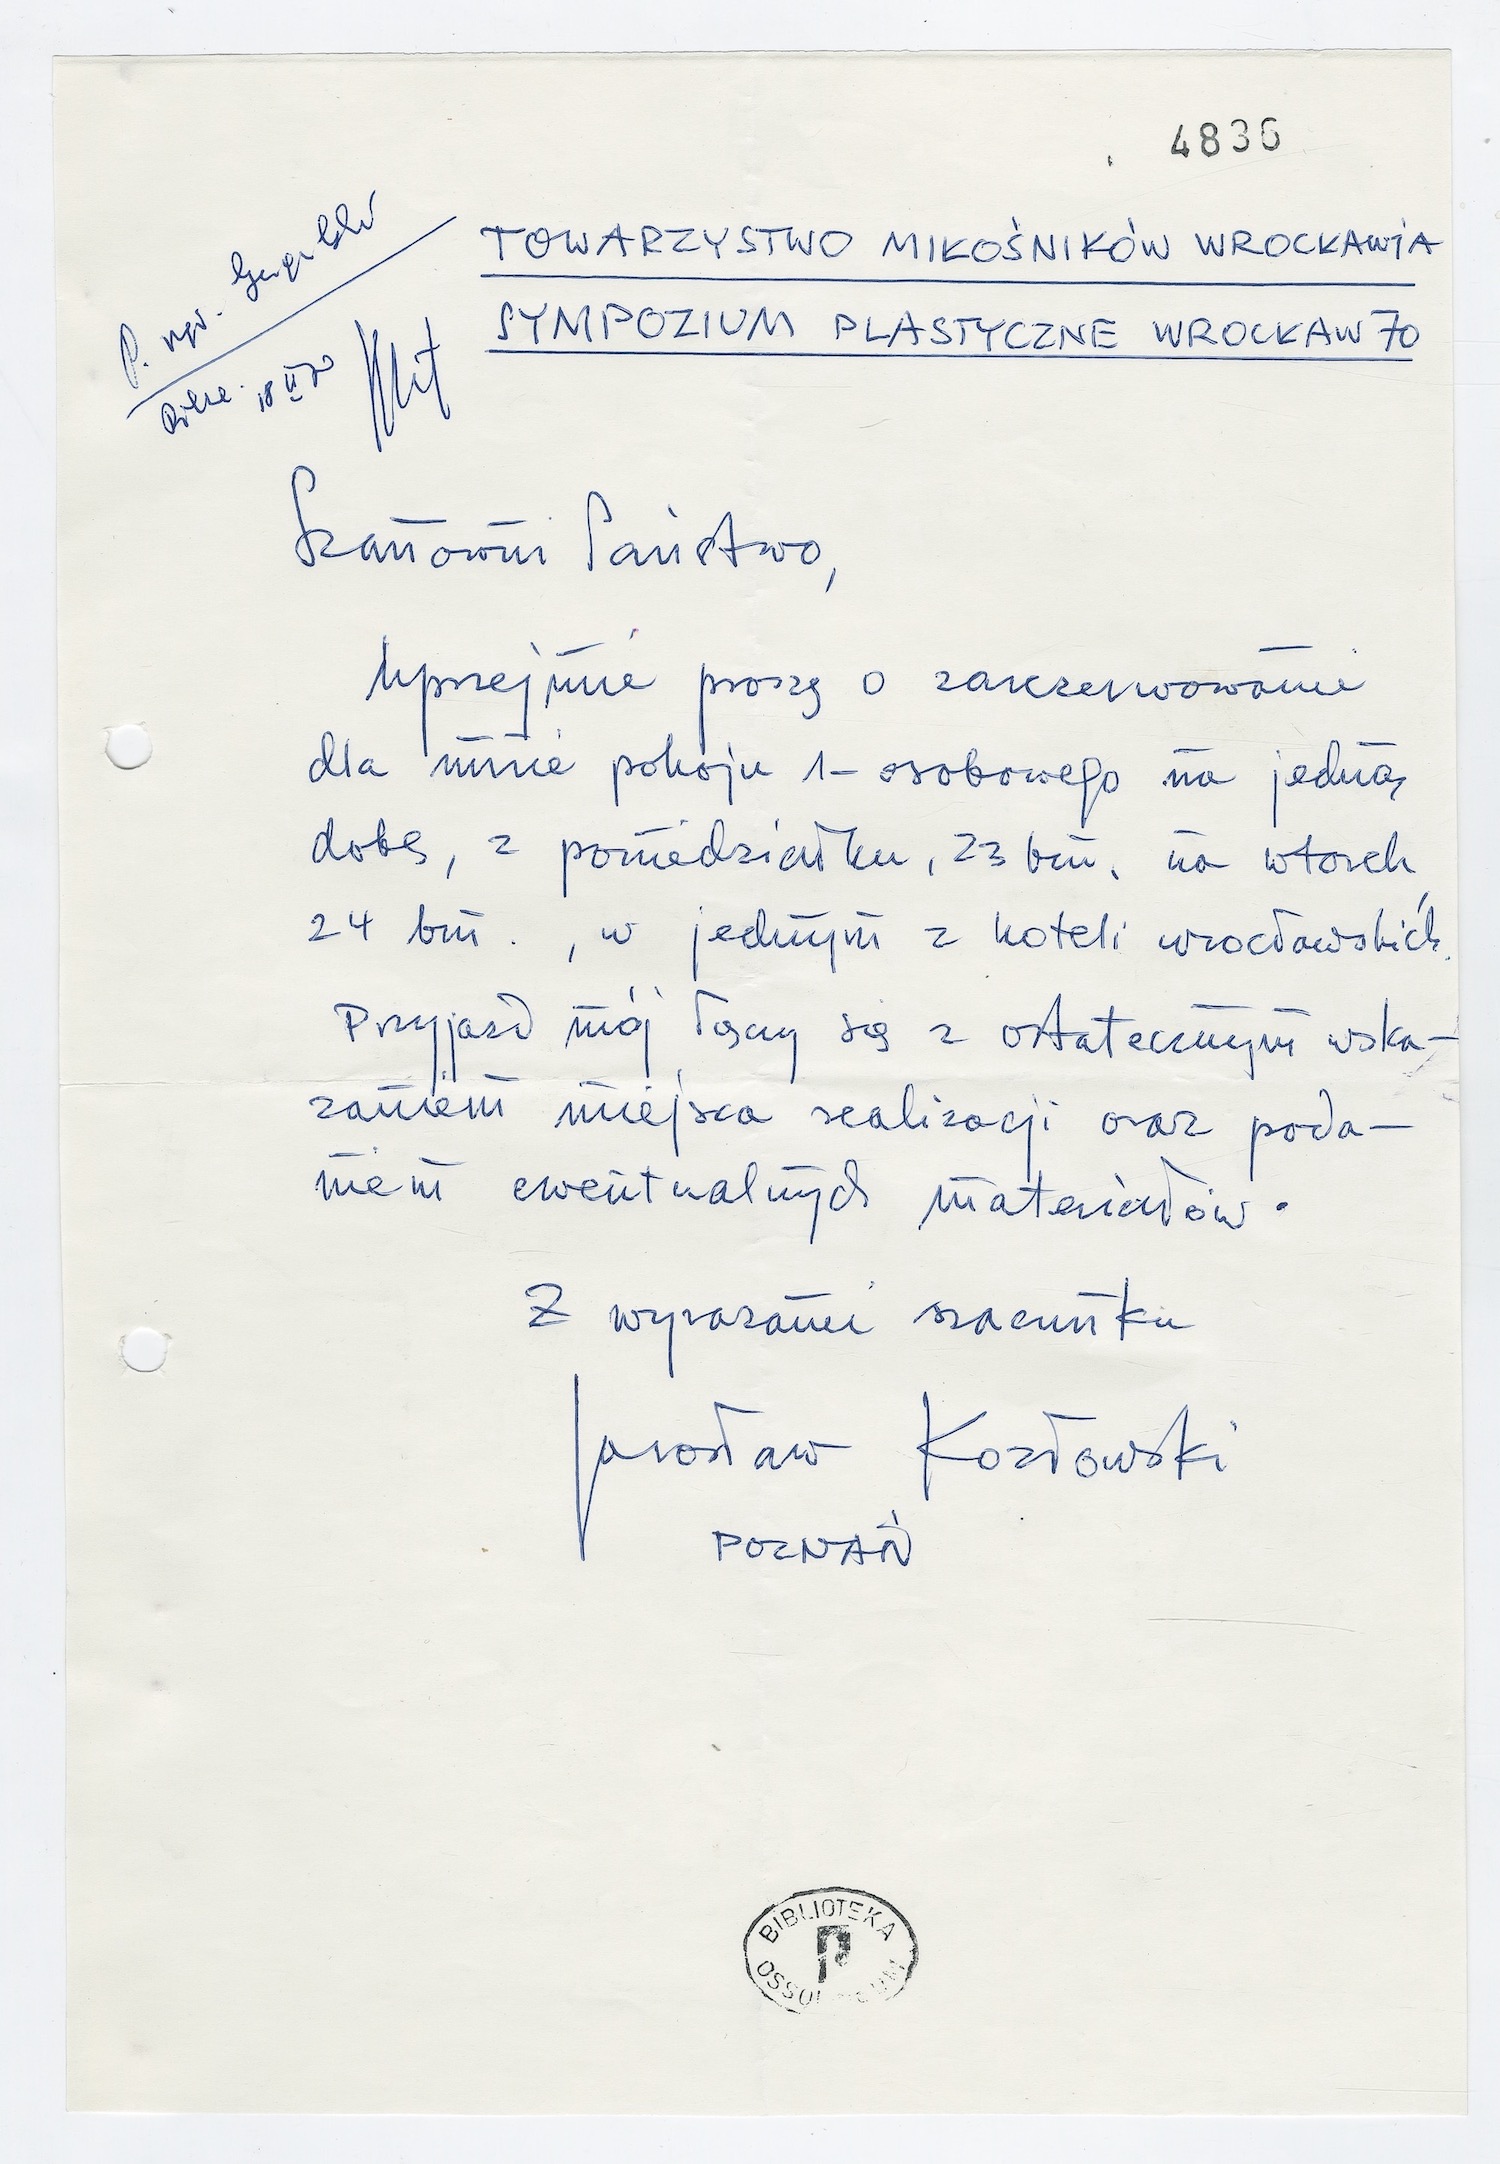 4836
TOWARZYSTWO MIŁOŚNIKÓW WROCŁAWIA
SYMPOZIUM PLASTYCZNE WROCŁAW 70
P.
18 II 70
Szanowni Państwo,
Uprzejmie proszę o zarezerwowanie
dla mnie pokoju 1-osobowego na jedną
dobę, z poniedziałku, 23 bm. na wtorek
24 bm., w jednym z hoteli wrocławskich.
Przyjazd mój łączy się z ostatecznym wska-
zaniem miejsca realizacji oraz poda-
niem ewentualnych materiałów.
Z wyrazami szacunku
Jarosław Kozłowski
POZNAŃ
BIBLIOTEKA
OSSOLINEUM